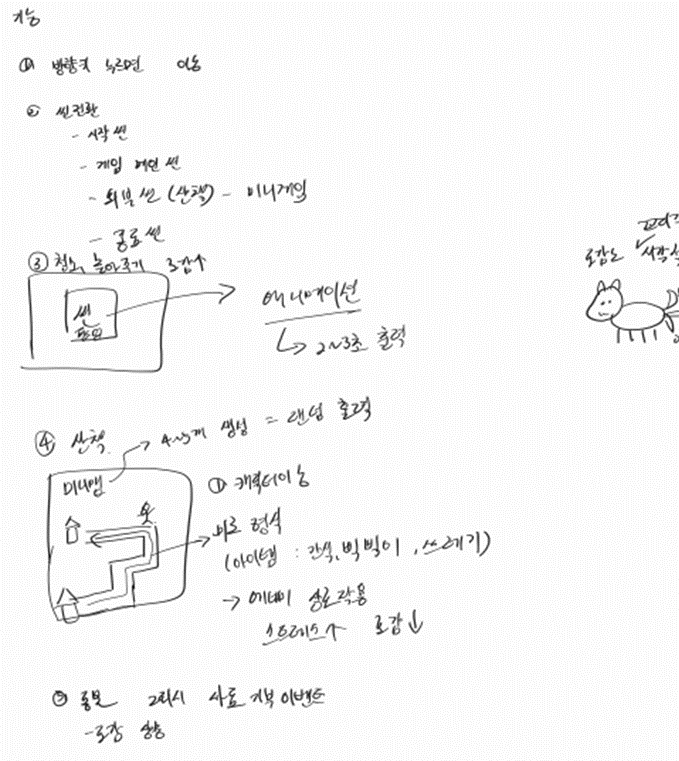 기능
① 방향키 누르면 이동
② 씬전환
- 시작 씬
- 게임 메인 씬
- 외부 씬 (산책) - 미니게임
- 종료씬
③ 청소, 놀아주기 호감↑
씬
애니메이션
↳ 2~3초 출력
호감도
④ 산책
→ 4~5개 생성 = 랜덤 출력
미니맵
① 캐릭터이동
→ 미로 형식
(아이템 : 간식, 삑삑이, 쓰레기)
→ 애삐 상호작용
스트레스↑ 호감↓
⑤ 홍보 클릭시 사료 기부 이벤트
- 호감 상승